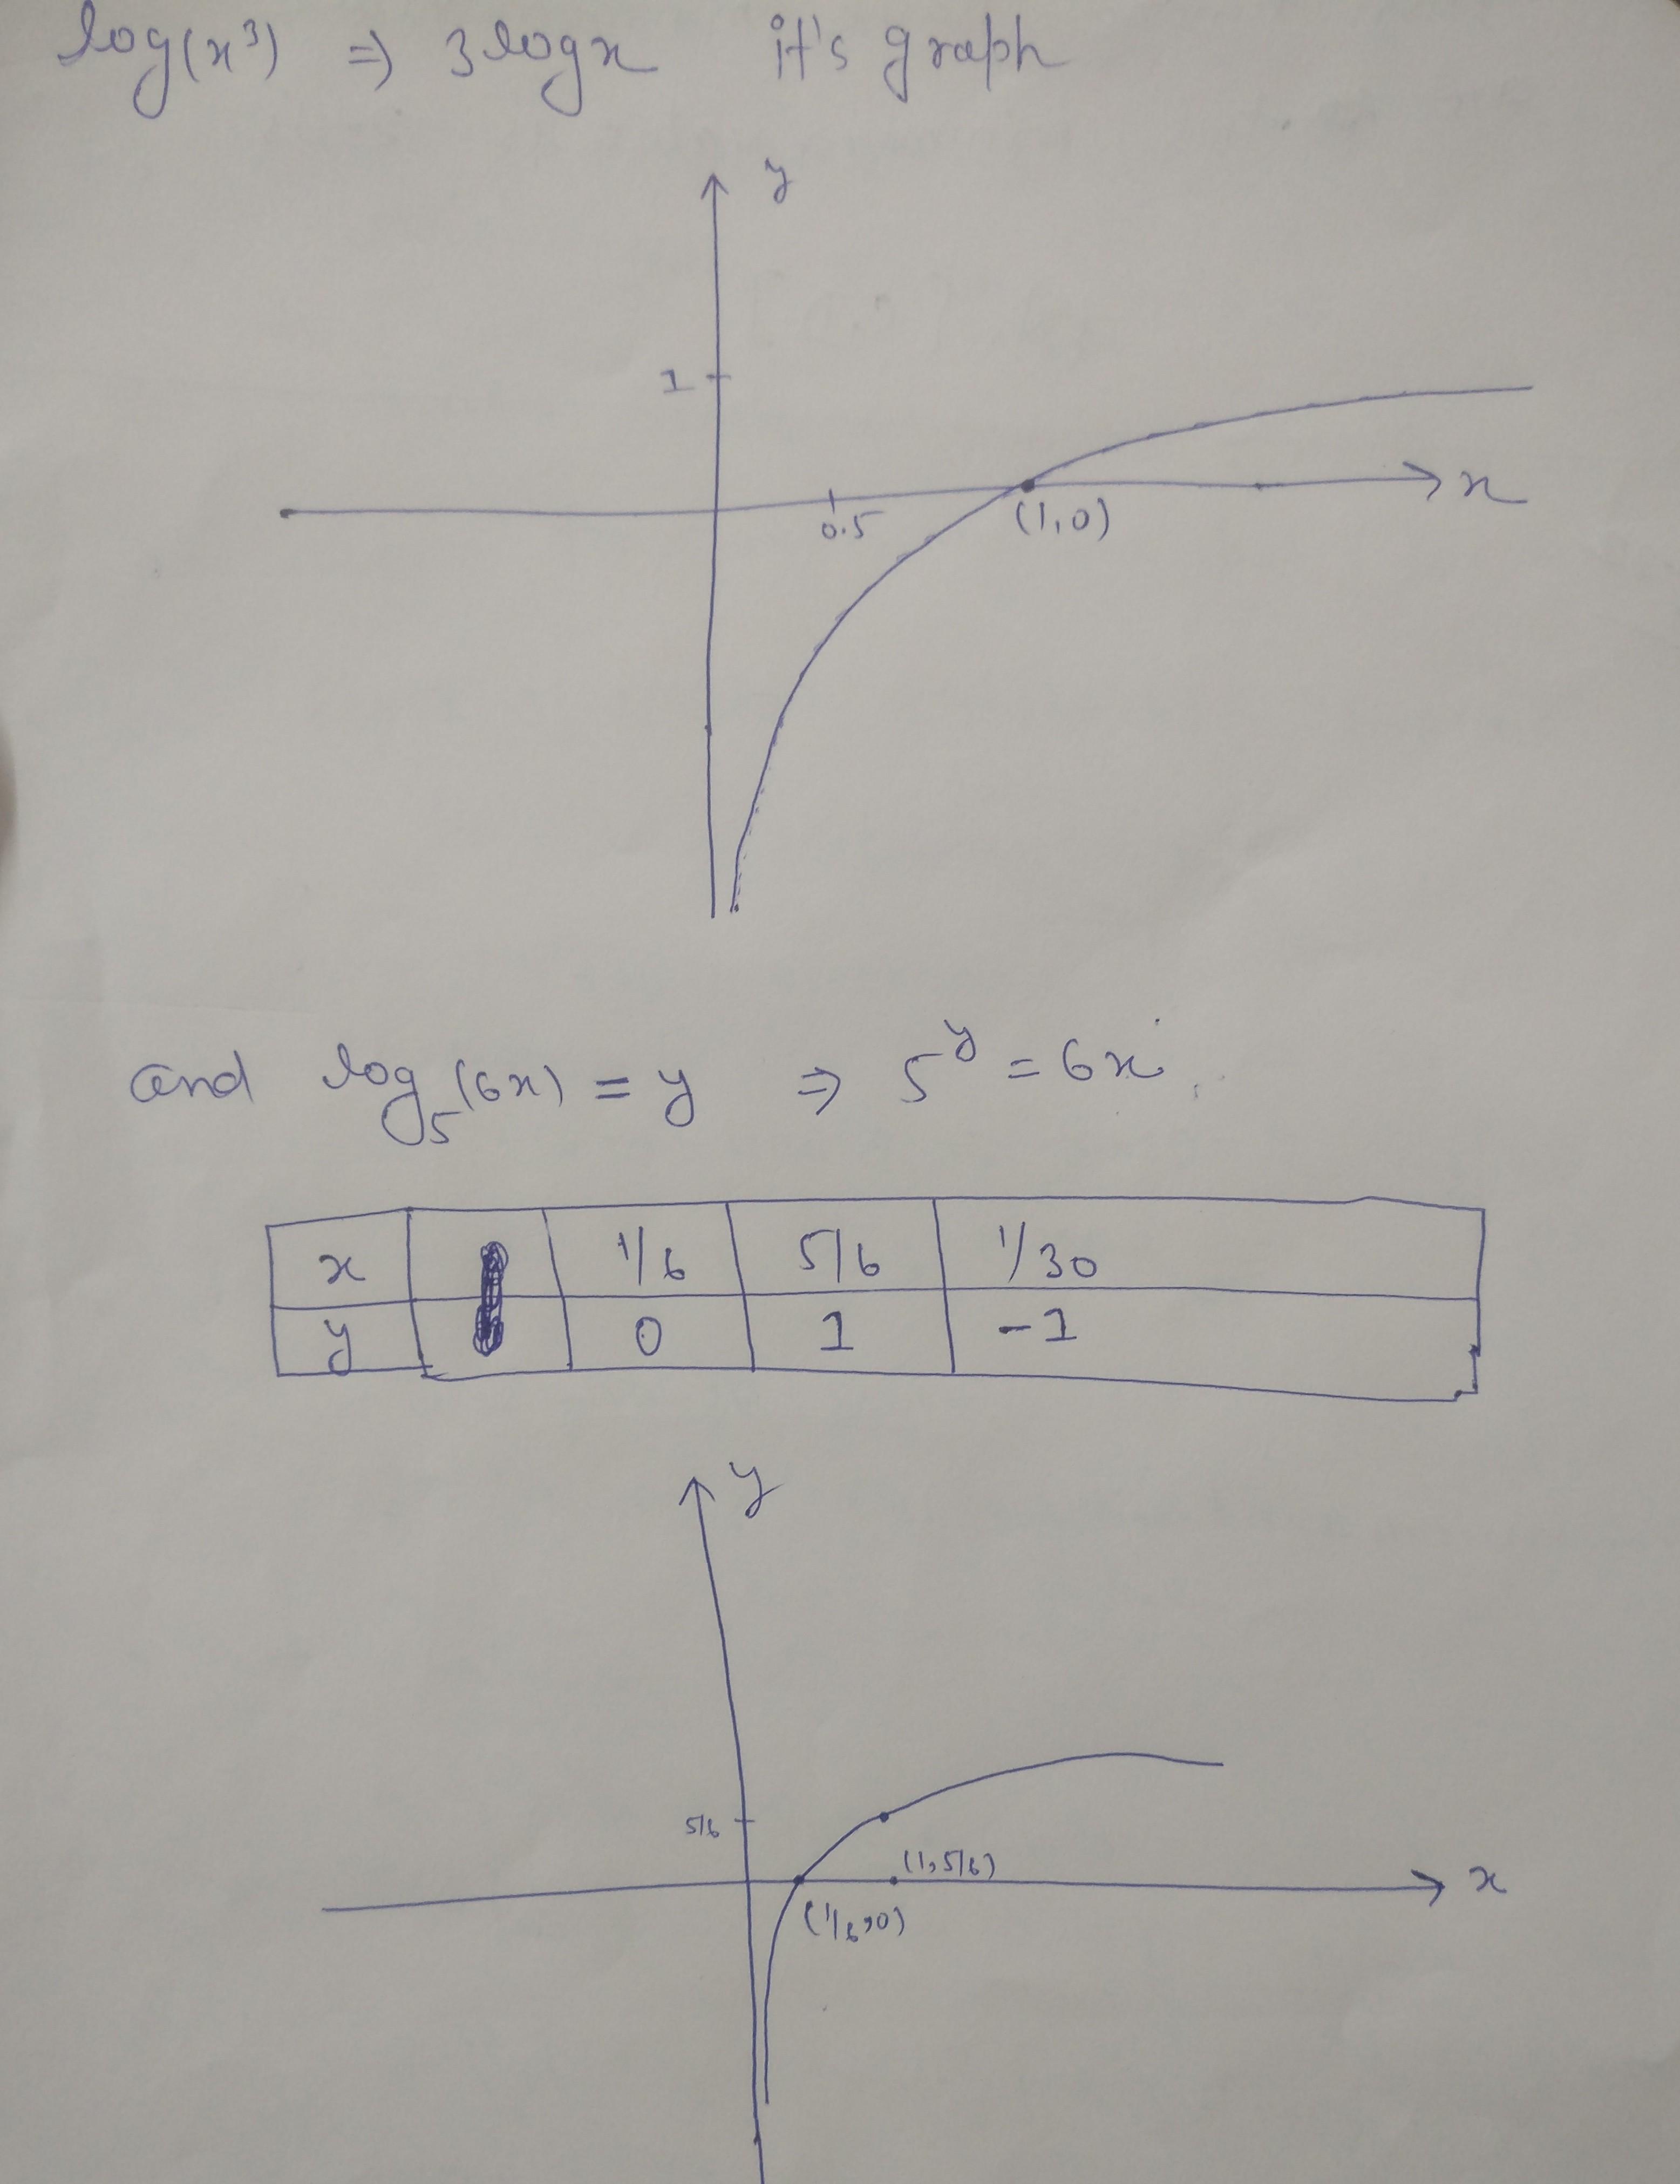 log(x³) ⇒ 3logx it's graph
y
1
x
0.5
(1,0)
and log₅(6x) = y ⇒ 5^y = 6x
x 1/6 5/6 1/30
y 0 1 -1
y
5/6
(1,5/6)
x
(1/6,0)